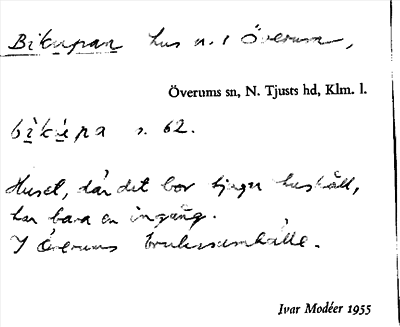 Bikupan hus n. i Överum,
Överums sn, N. Tjusts hd, Klm. l.
bikupa s. 62.
Huset, där det bor tjugu hushåll,
har bara en ingång.
I Överums brukssamhälle.
Ivar Modéer 1955